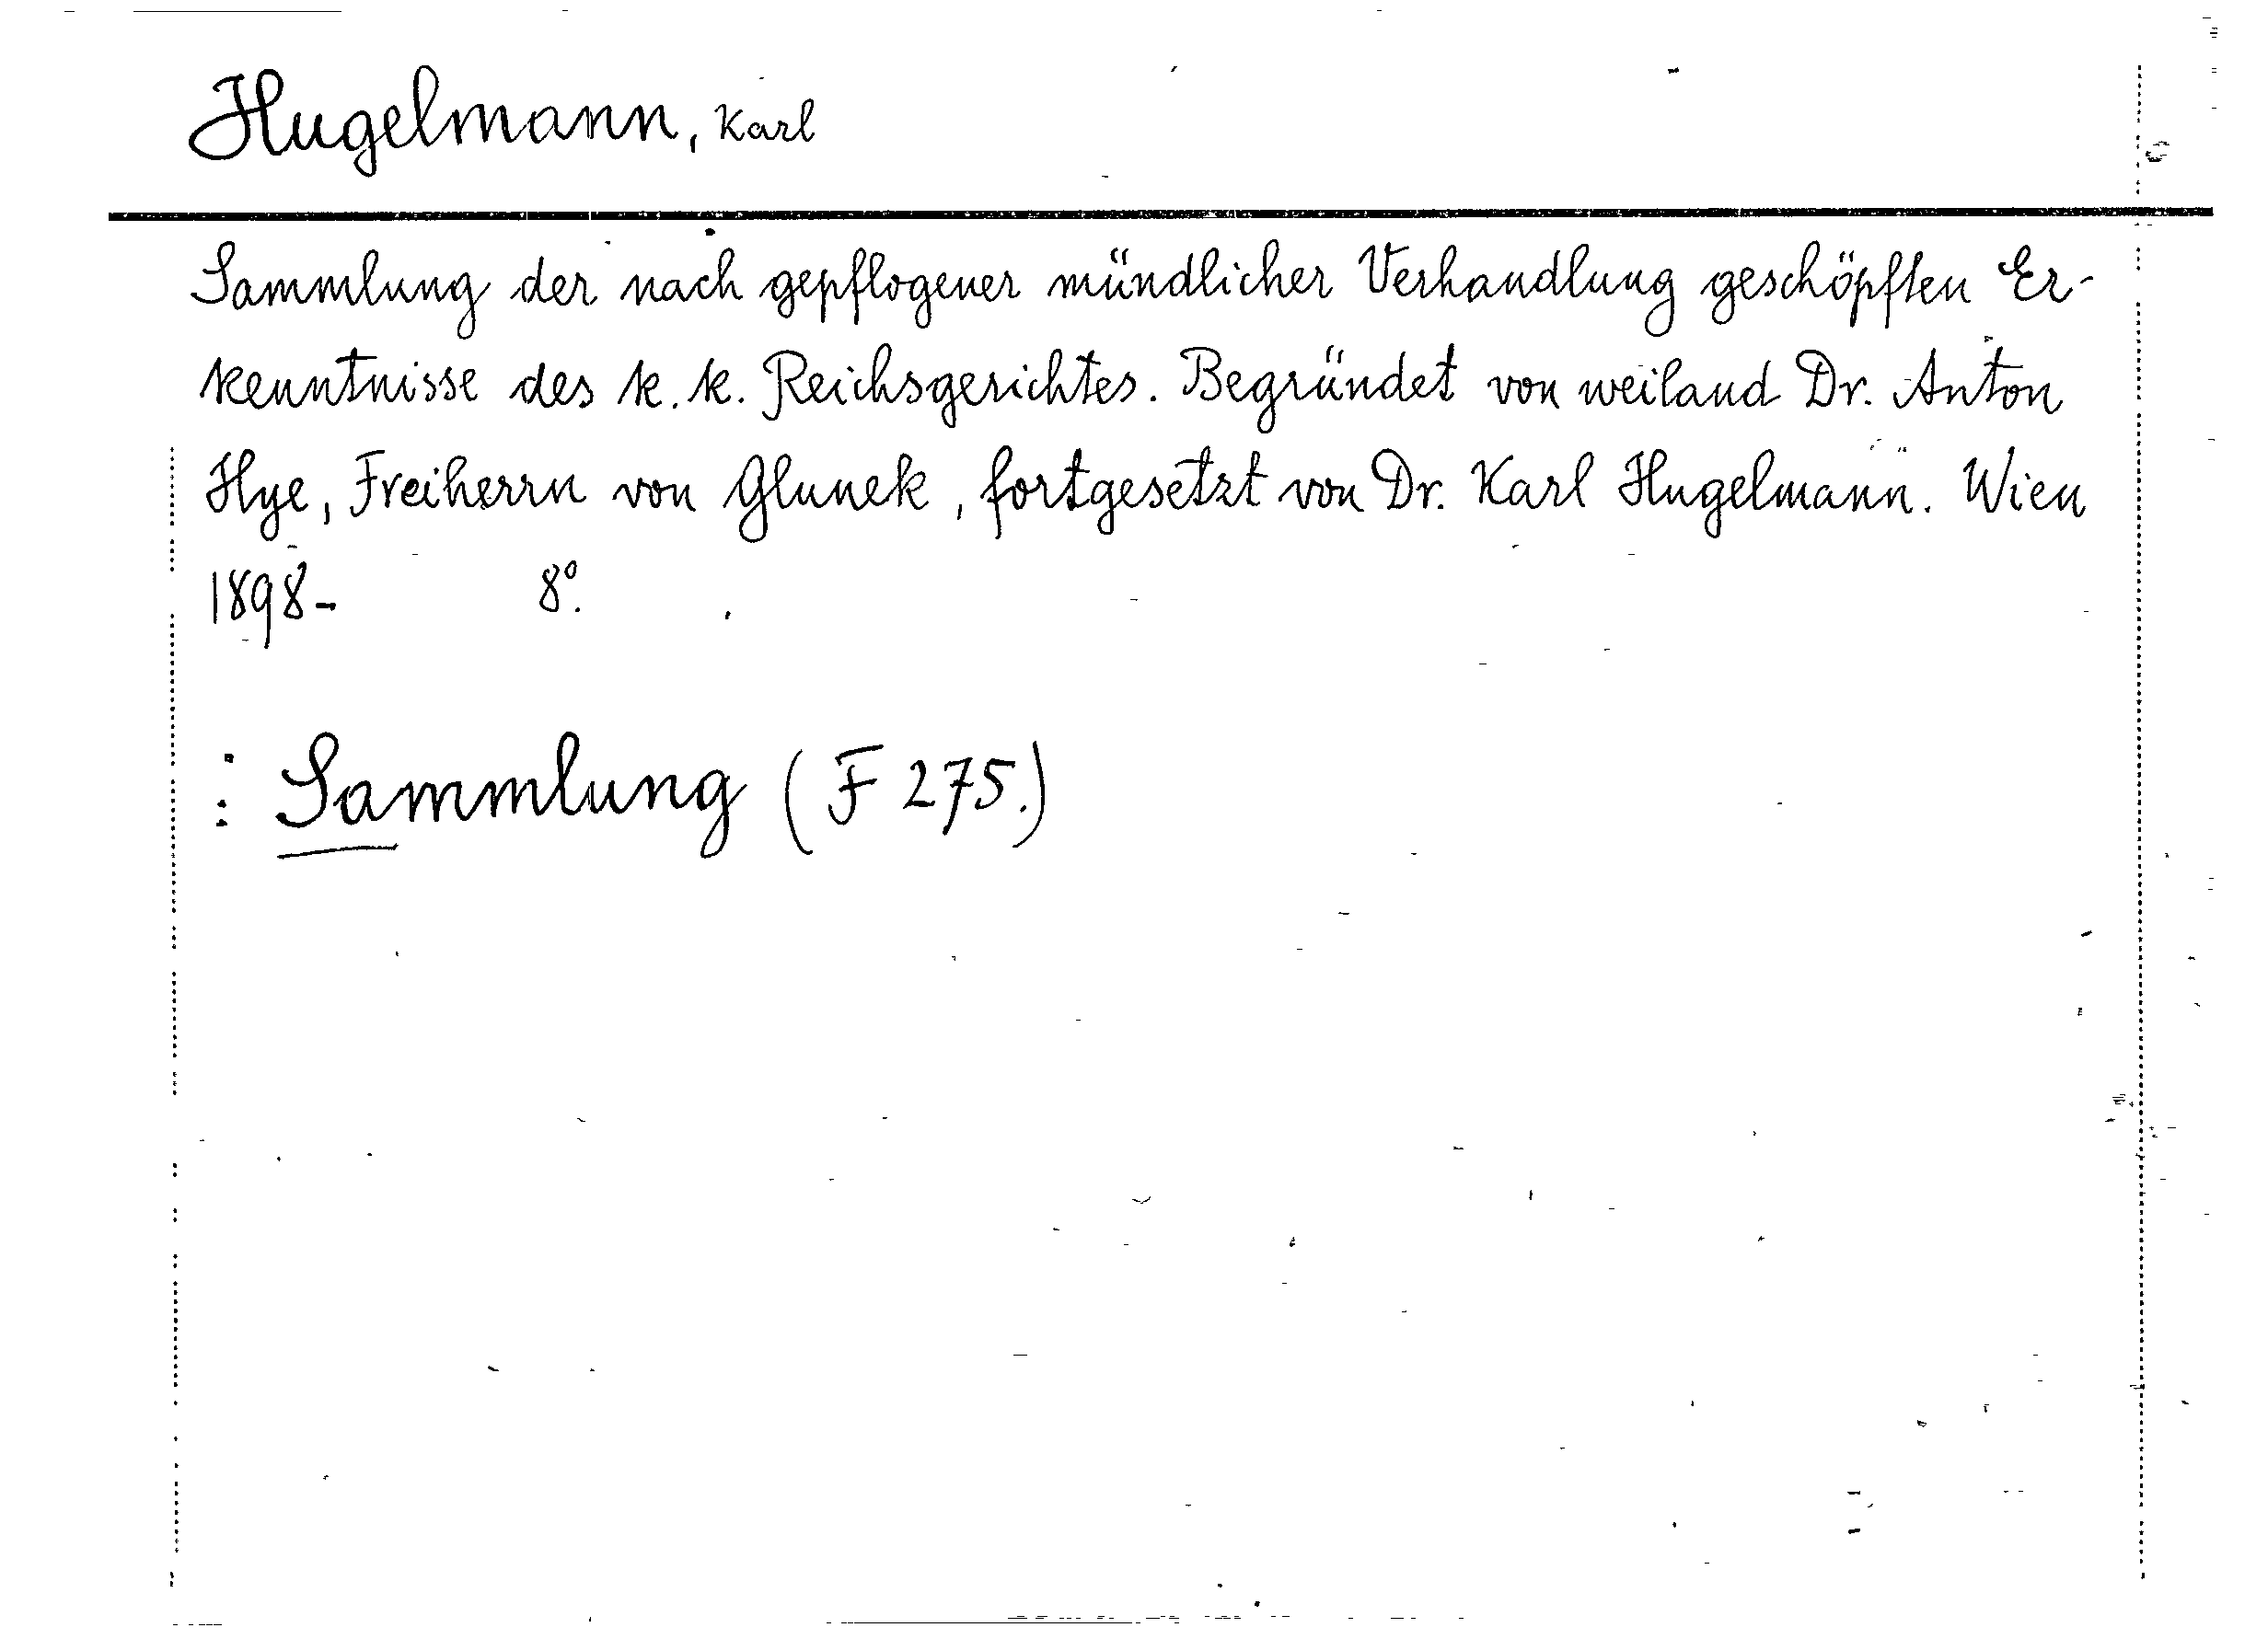 Hugelmann, Karl
Sammlung der nach gepflogener mündlicher Verhandlung geschöpften Er-
kenntnisse des k. k. Reichsgerichtes. Begründet von weiland Dr. Anton
Hye, Freiherrn von Glunek, fortgesetzt von Dr. Karl Hugelmann. Wien
1898- 8°.
: Sammlung (F 275.)